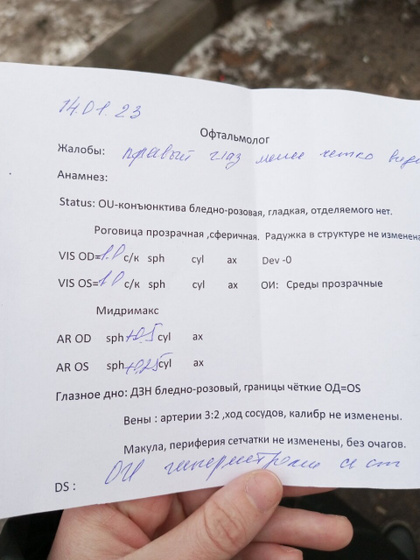 14.01.23
Офтальмолог
Жалобы: правый глаз менее четко види
Анамнез:
Status: OU-конъюнктива бледно-розовая, гладкая, отделяемого нет.
Роговица прозрачная ,сферичная. Радужка в структуре не изменена
VIS OD=1.0 с/к sph cyl ax Dev -0
VIS OS=1.0 с/к sph cyl ax ОИ: Среды прозрачные
Мидримакс
AR OD sph+0.5 cyl ax
AR OS sph+0.25 cyl ax
Глазное дно: ДЗН бледно-розовый, границы чёткие ОД=OS
Вены : артерии 3:2 ,ход сосудов, калибр не изменены.
Макула, периферия сетчатки не изменены, без очагов.
DS : ОИ гиперметропия сл ст